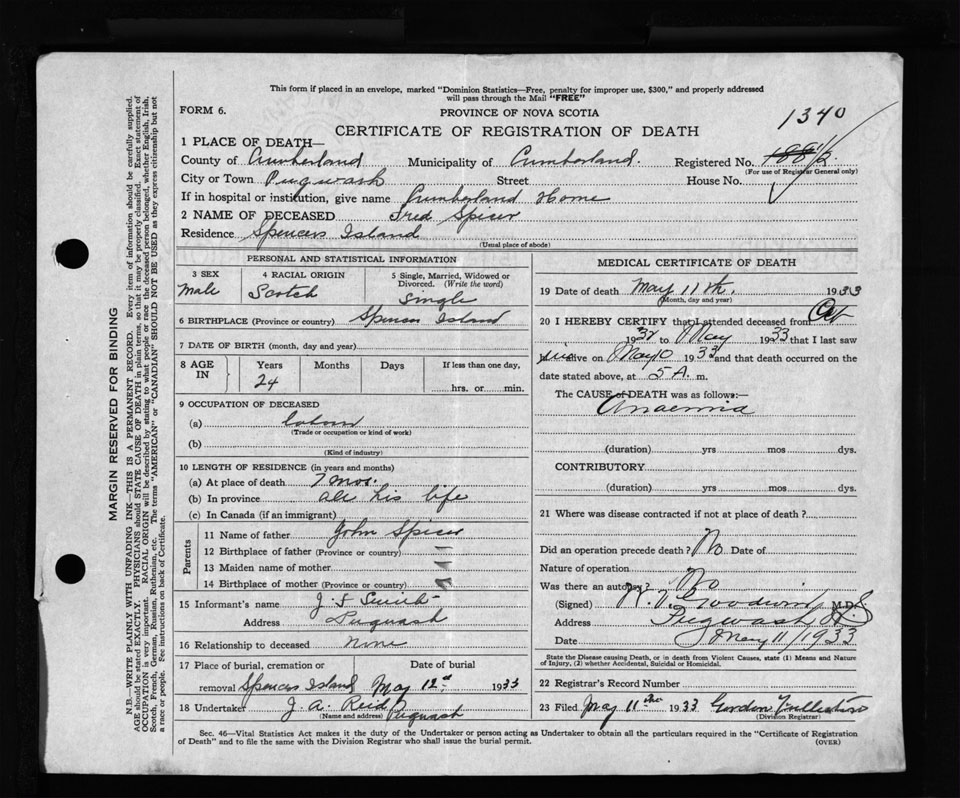 This form if placed in an envelope, marked "Dominion Statistics—Free, penalty for improper use, $300," and properly addressed
will pass through the Mail "FREE"
FORM 6.
PROVINCE OF NOVA SCOTIA
1340
CERTIFICATE OF REGISTRATION OF DEATH
1 PLACE OF DEATH—
County of Cumberland Municipality of Cumberland. Registered No.
(For use of Registrar General only)
City or Town Pugwash Street House No.
If in hospital or institution, give name Cumberland Home
2 NAME OF DECEASED Fred Spicer
Residence Spencers Island
(Usual place of abode)
PERSONAL AND STATISTICAL INFORMATION
3 SEX 4 RACIAL ORIGIN 5 Single, Married, Widowed or
Divorced. (Write the word)
Male Scotch Single
6 BIRTHPLACE (Province or country) Spencers Island
7 DATE OF BIRTH (month, day and year)
8 AGE IN Years Months Days If less than one day,
24 hrs. or min.
9 OCCUPATION OF DECEASED
(a)
(Trade or occupation or kind of work)
(b)
(Kind of industry)
10 LENGTH OF RESIDENCE (in years and months)
(a) At place of death 7 mos.
(b) In province all his life
(c) In Canada (if an immigrant)
Parents
11 Name of father John Spicer
12 Birthplace of father (Province or country)
13 Maiden name of mother
14 Birthplace of mother (Province or country)
15 Informant's name J. F Smith
Address Pugwash
16 Relationship to deceased None
17 Place of burial, cremation or Date of burial
removal Spencers Island May 12 1933
18 Undertaker J. A. Reid Pugwash
(Name and address)
MEDICAL CERTIFICATE OF DEATH
19 Date of death May 11th. 1933
(Month, day and year)
20 I HEREBY CERTIFY that I attended deceased from Oct
1932 to May 1933 that I last saw
alive on May 10 1933 and that death occurred on the
date stated above, at 5 A. m.
The CAUSE of DEATH was as follows:—
Anaemia
(duration) yrs mos dys.
CONTRIBUTORY
(duration) yrs mos dys.
21 Where was disease contracted if not at place of death?
Did an operation precede death? No Date of
Nature of operation
Was there an autopsy? No
(Signed) Goodwin M.D.
Address Pugwash
Date May 11/1933
State the Disease causing Death, or in death from Violent Causes, state (1) Means and Nature
of Injury, (2) whether Accidental, Suicidal or Homicidal.
22 Registrar's Record Number
23 Filed May 11 1933 Gordon
(Division Registrar)
Sec. 46—Vital Statistics Act makes it the duty of the Undertaker or person acting as Undertaker to obtain all the particulars required in the "Certificate of Registration
of Death" and to file the same with the Division Registrar who shall issue the burial permit. (OVER)
MARGIN RESERVED FOR BINDING
N.B.—WRITE PLAINLY WITH UNFADING INK—THIS IS A PERMANENT RECORD. Every item of information should be carefully supplied.
AGE should be stated EXACTLY. PHYSICIANS should STATE CAUSE OF DEATH in plain terms, so that it may be properly classified. Exact statement of
OCCUPATION is very important. RACIAL ORIGIN will be described by stating to what people or race the deceased person belonged, whether English, Irish,
Scotch, French, German, Russian, Ruthenian, etc. The terms "AMERICAN" or "CANADIAN" SHOULD NOT BE USED as they express citizenship but not
a race or people. See instructions on back of Certificate.